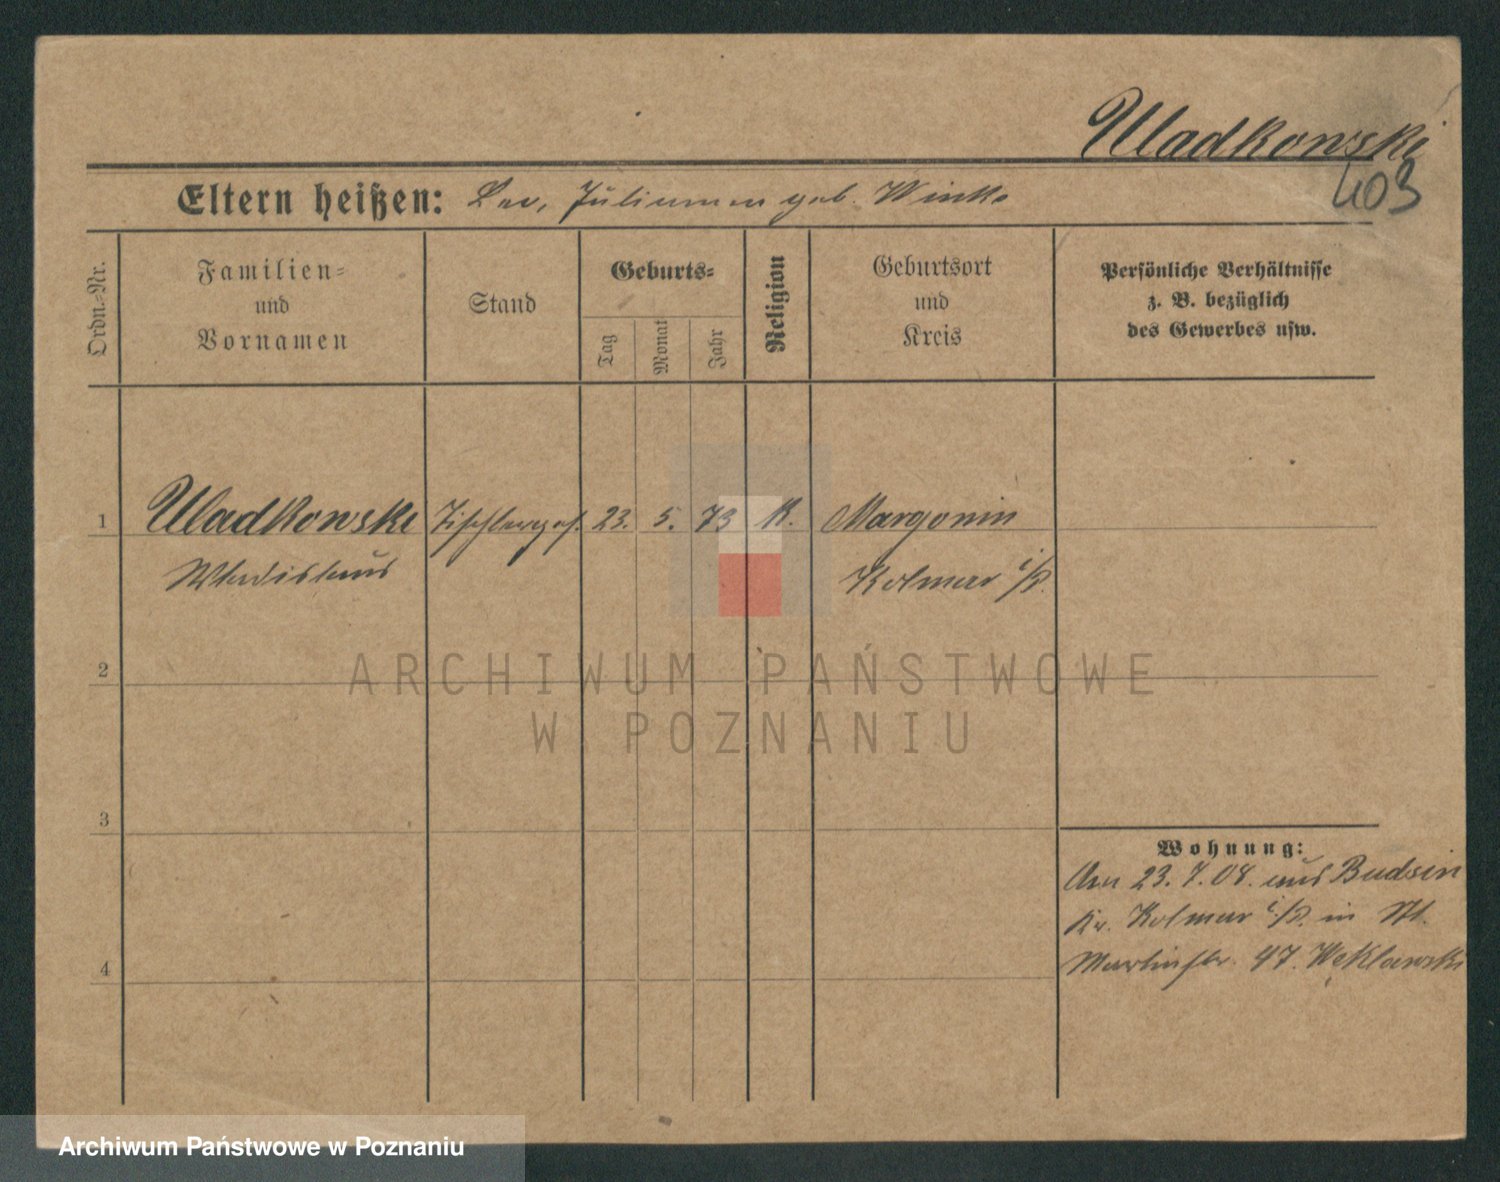 Uladkowski
403
Eltern heißen: Leo, Julianna geb. Winke
Ordn.-Nr.
Familien-
und
Vornamen
Stand
Geburts-
Tag
Monat
Jahr
Religion
Geburtsort
und
Kreis
Persönliche Verhältnisse
z. B. bezüglich
des Gewerbes usw.
1 Uladkowski Tischlerges. 23. 5. 73 K. Margonin
Wladislaus Kolmar i/P.
2
ARCHIWUM PAŃSTWOWE
W POZNANIU
3
Wohnung:
Am 23.7.08. aus Budsin
Kr. Kolmar i/P. in St.
4
Martinstr. 47. Węklawski
Archiwum Państwowe w Poznaniu